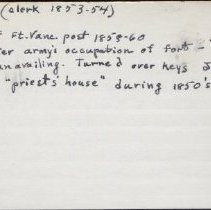 (clerk 1853-54)
Ft. Vanc. post 1858-60
army's occupation of fort -
unavailing. Turned over keys
"priest's house" during 1850's